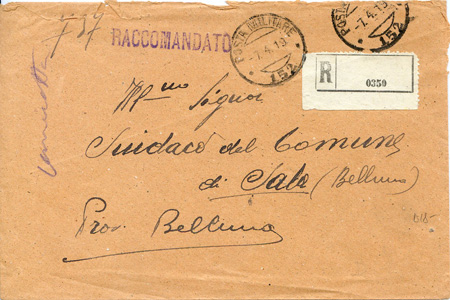 737
RACCOMANDATO
POSTA MILITARE
-7.4.19
* 152 *
POSTA
7.4.19
* 152 *
R
0350
Ill/mo Signor
Sindaco del Comune
di Sala (Belluno)
Prov. Belluno